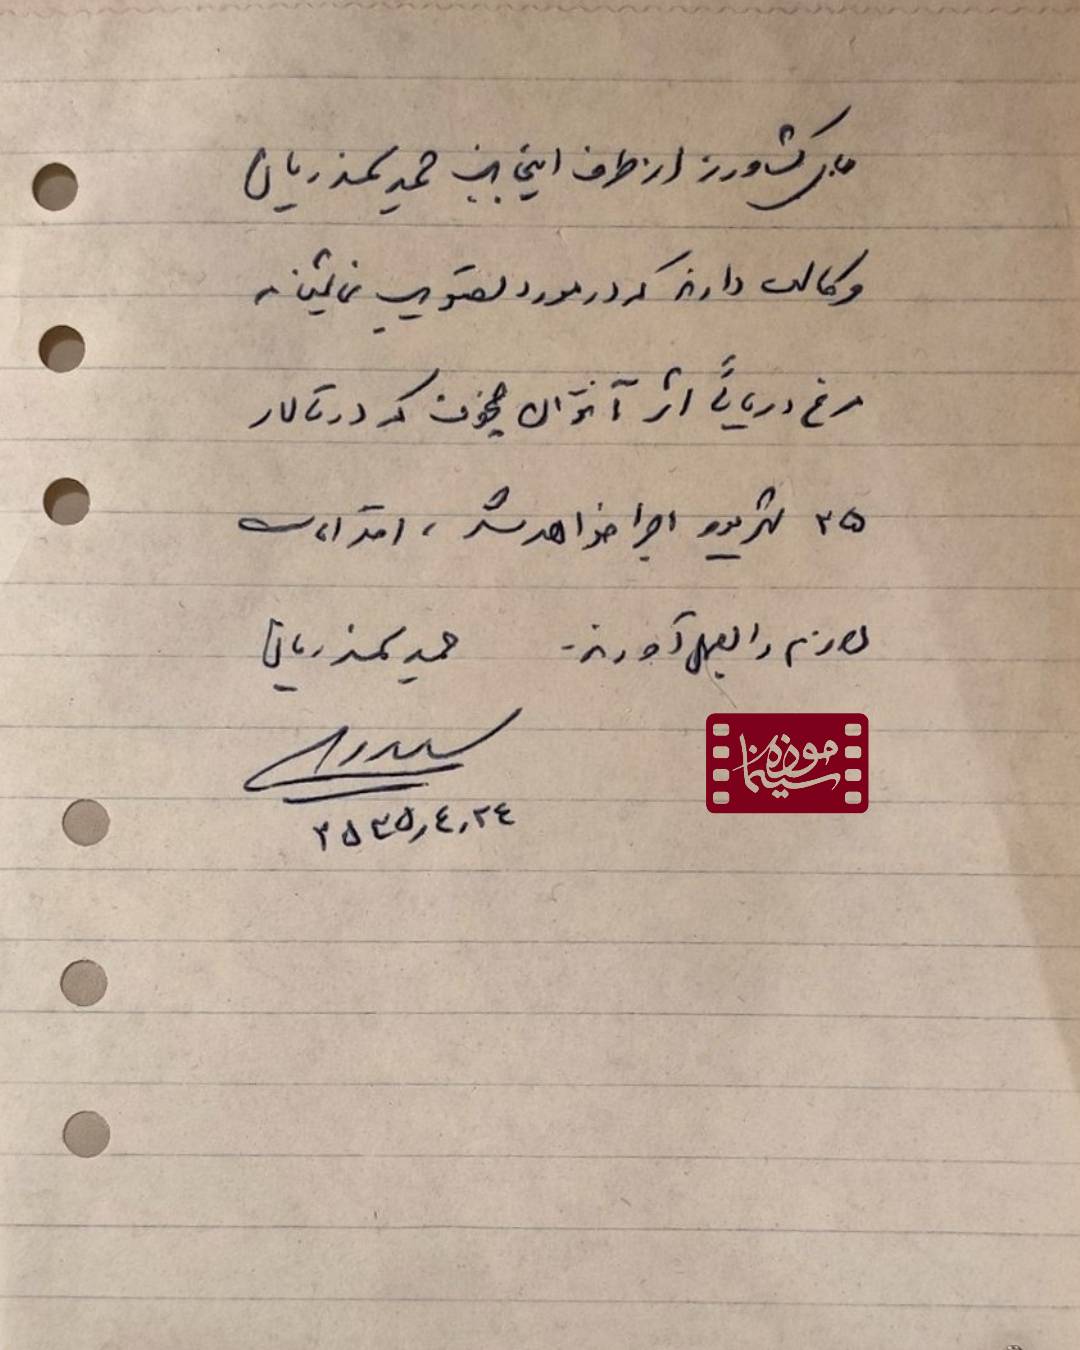 کشاورز از طرف اینجانب حمید سمندریان
وکالت دارند که در مورد تصویب نمایشنامه
مرغ دریائی اثر آنتوان چخوف که در تالار
۲۵ شهریور اجرا خواهد شد، اقدامات
لازم را بعمل آورند. حمید سمندریان
۲۵۳۵,۴,۲۴
موزه سینما